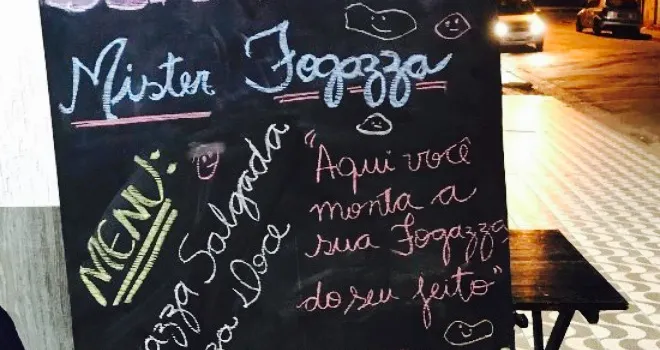 Mister Fogazza
MENU:
Salgada
Doce
"Aqui você
monta a
sua Fogazza
do seu jeito"